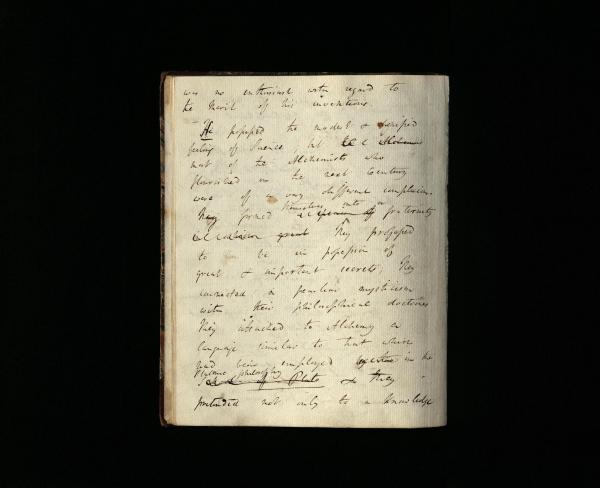 was no enthusiast with regard to
the merit of his inventions.
He possessed the modest &
feeling of Science, but
most of the Alchemists who
flourished in the next Century
were of a very different complexion.
They formed themselves into a fraternity
They professed
to be in possession of
great & important secrets; They
connected a peculiar mysticism
with their philosophical doctrines
They attached to Alchemy a
language similar to that which
had been employed in the
Platonic philosophy
School of Plato & they
pretended not only to a knowledge